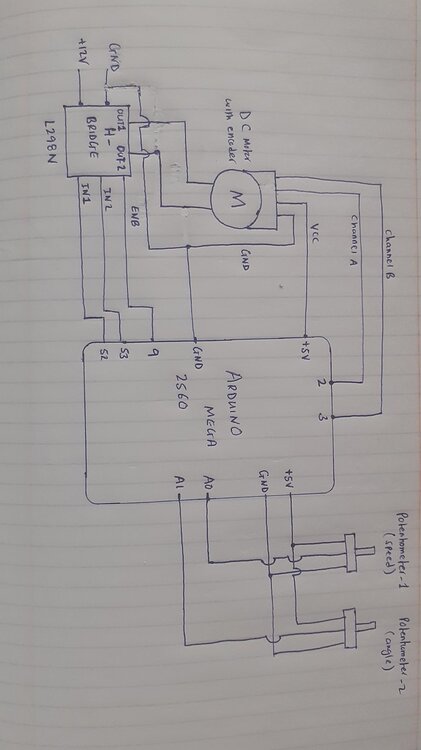 Potentiometer-1
(speed)
Potentiometer-2
(angle)
Channel B
Channel A
VCC
GND
DC Motor
with encoder
M
GND
+12V
OUT1
OUT2
H-
BRIDGE
L298N
IN1
IN2
ENB
+5V
2
3
GND
9
53
52
ARDUINO
MEGA
2560
+5V
GND
A0
A1